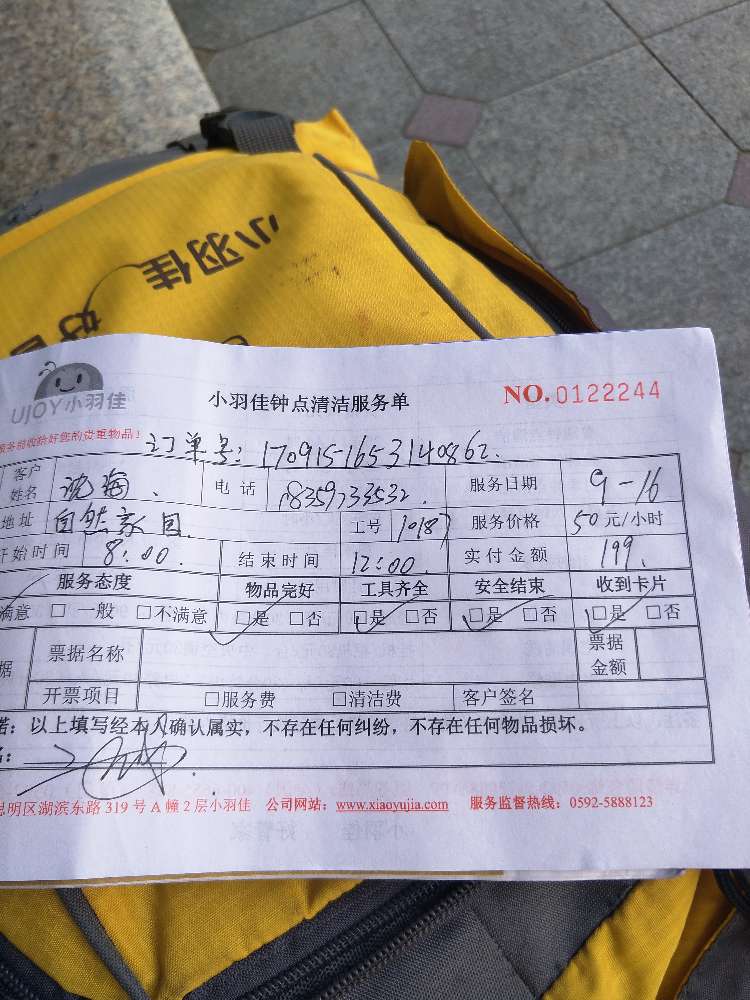 小羽佳
好
UJOY小羽佳
小羽佳钟点清洁服务单
NO.0122244
服务前收拾好您的贵重物品!
订单号:1709151653140862.
客户姓名 沈海. 电话 18359733532. 服务日期 9-16
地址 自然家园. 工号 10187 服务价格 50元/小时
开始时间 8:00. 结束时间 12:00. 实付金额 199.
服务态度 物品完好 工具齐全 安全结束 收到卡片
满意 □一般 □不满意 □是 □否 □是 □否 □是 □否 □是 □否
据 票据名称 票据金额
开票项目 □服务费 □清洁费 客户签名
诺:以上填写经本人确认属实,不存在任何纠纷,不存在任何物品损坏。
名:
思明区湖滨东路319号A幢2层小羽佳 公司网站:www.xiaoyujia.com 服务监督热线:0592-5888123